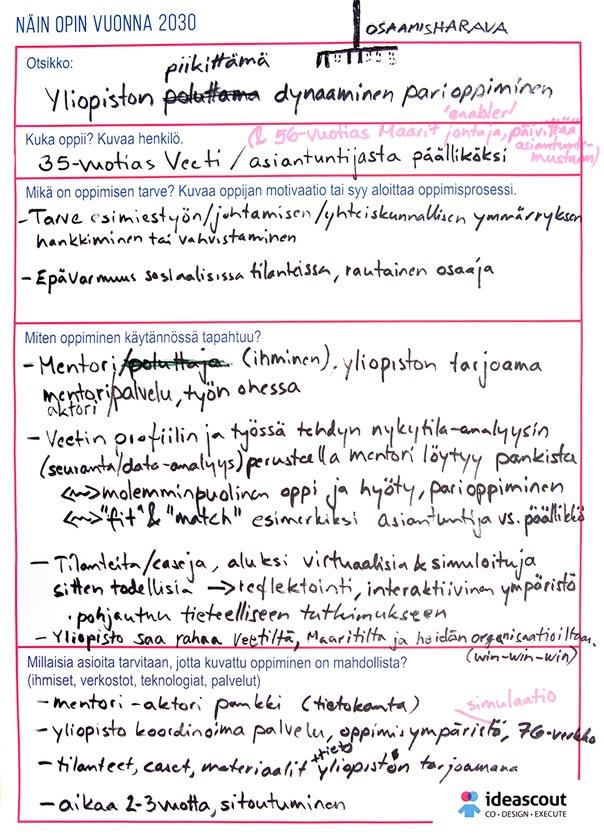 NÄIN OPIN VUONNA 2030
OSAAMISHARAVA
Otsikko:
piikittämä
Yliopiston poluttama dynaaminen parioppiminen
'enabler'
Kuka oppii? Kuvaa henkilö.
(& 56-vuotias Maarit johtaja, päivittää
asiantunte-
mustaan)
35-vuotias Veeti / asiantuntijasta päälliköksi
Mikä on oppimisen tarve? Kuvaa oppijan motivaatio tai syy aloittaa oppimisprosessi.
- Tarve esimiestyön/johtamisen/yhteiskunnallisen ymmärryksen
hankkiminen tai vahvistaminen
- Epävarmuus sosiaalisissa tilanteissa, rautainen osaaja
Miten oppiminen käytännössä tapahtuu?
- Mentori/poluttaja (ihminen). yliopiston tarjoama
mentori/palvelu, työn ohessa
aktori
- Veetin profiilin ja työssä tehdyn nykytila-analyysin
(seuranta/data-analyys) perusteella mentori löytyy pankista
<~> molemminpuolinen oppi ja hyöty, parioppiminen
<~> "fit" & "match" esimerkiksi asiantuntija vs. päällikkö
- Tilanteita/caseja, aluksi virtuaalisia & simuloituja
sitten todellisia → reflektointi, interaktiivinen ympäristö
• pohjautuu tieteelliseen tutkimukseen
- Yliopisto saa rahaa Veetiltä, Maaritilta ja heidän organisaatioiltaan.
(win-win-win)
Millaisia asioita tarvitaan, jotta kuvattu oppiminen on mahdollista?
(ihmiset, verkostot, teknologiat, palvelut)
- mentori-aktori pankki (tietokanta)
simulaatio
- yliopisto koordinoima palvelu, oppimisympäristö, 7G-verkko
+tieto
- tilanteet, caset, materiaalit yliopiston tarjoamana
- aikaa 2-3 vuotta, sitoutuminen
ideascout
CO • DESIGN • EXECUTE